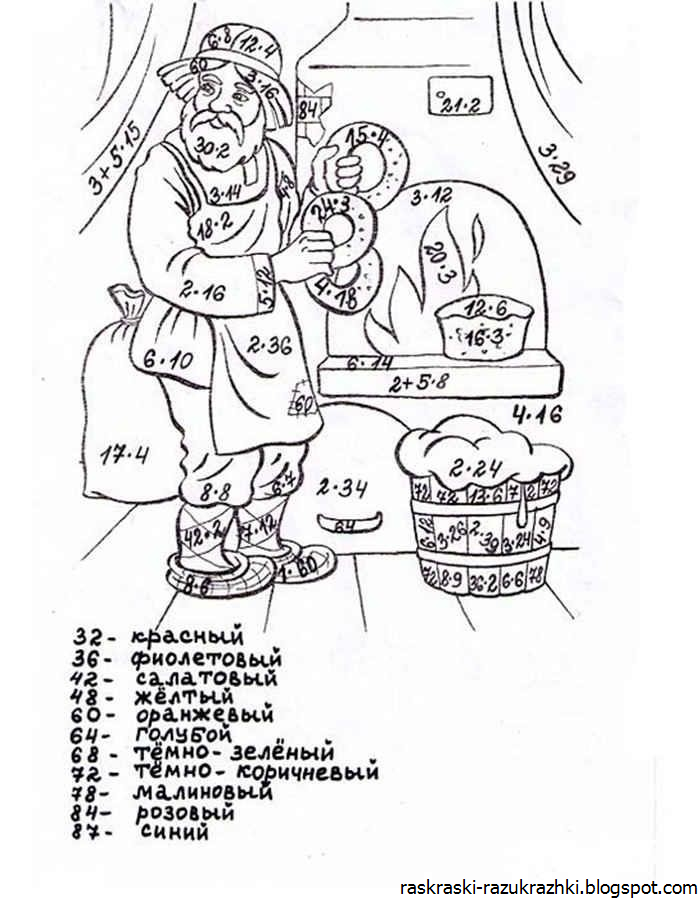 6·8
12·4
60
3·16
84
21·2
15·4
3+5·15
3·29
30·2
3·14
4·8
3·12
24·3
18·2
20·3
5·12
2·16
4·18
12·6
16·3
2·36
6·10
6·14
2+5·8
60
4·16
17·4
2·24
8·8
6·7
2·34
72
72
13·6
7
2
72
64
42·2
7·12
6·12
3·26
2·39
3·24
4·9
8·6
1·60
72
8·9
36·2
6·6
78
32- красный
36- фиолетовый
42- салатовый
48- жёлтый
60- оранжевый
64- голубой
68- тёмно-зелёный
72- тёмно-коричневый
78- малиновый
84- розовый
87- синий
raskraski-razukrazhki.blogspot.com